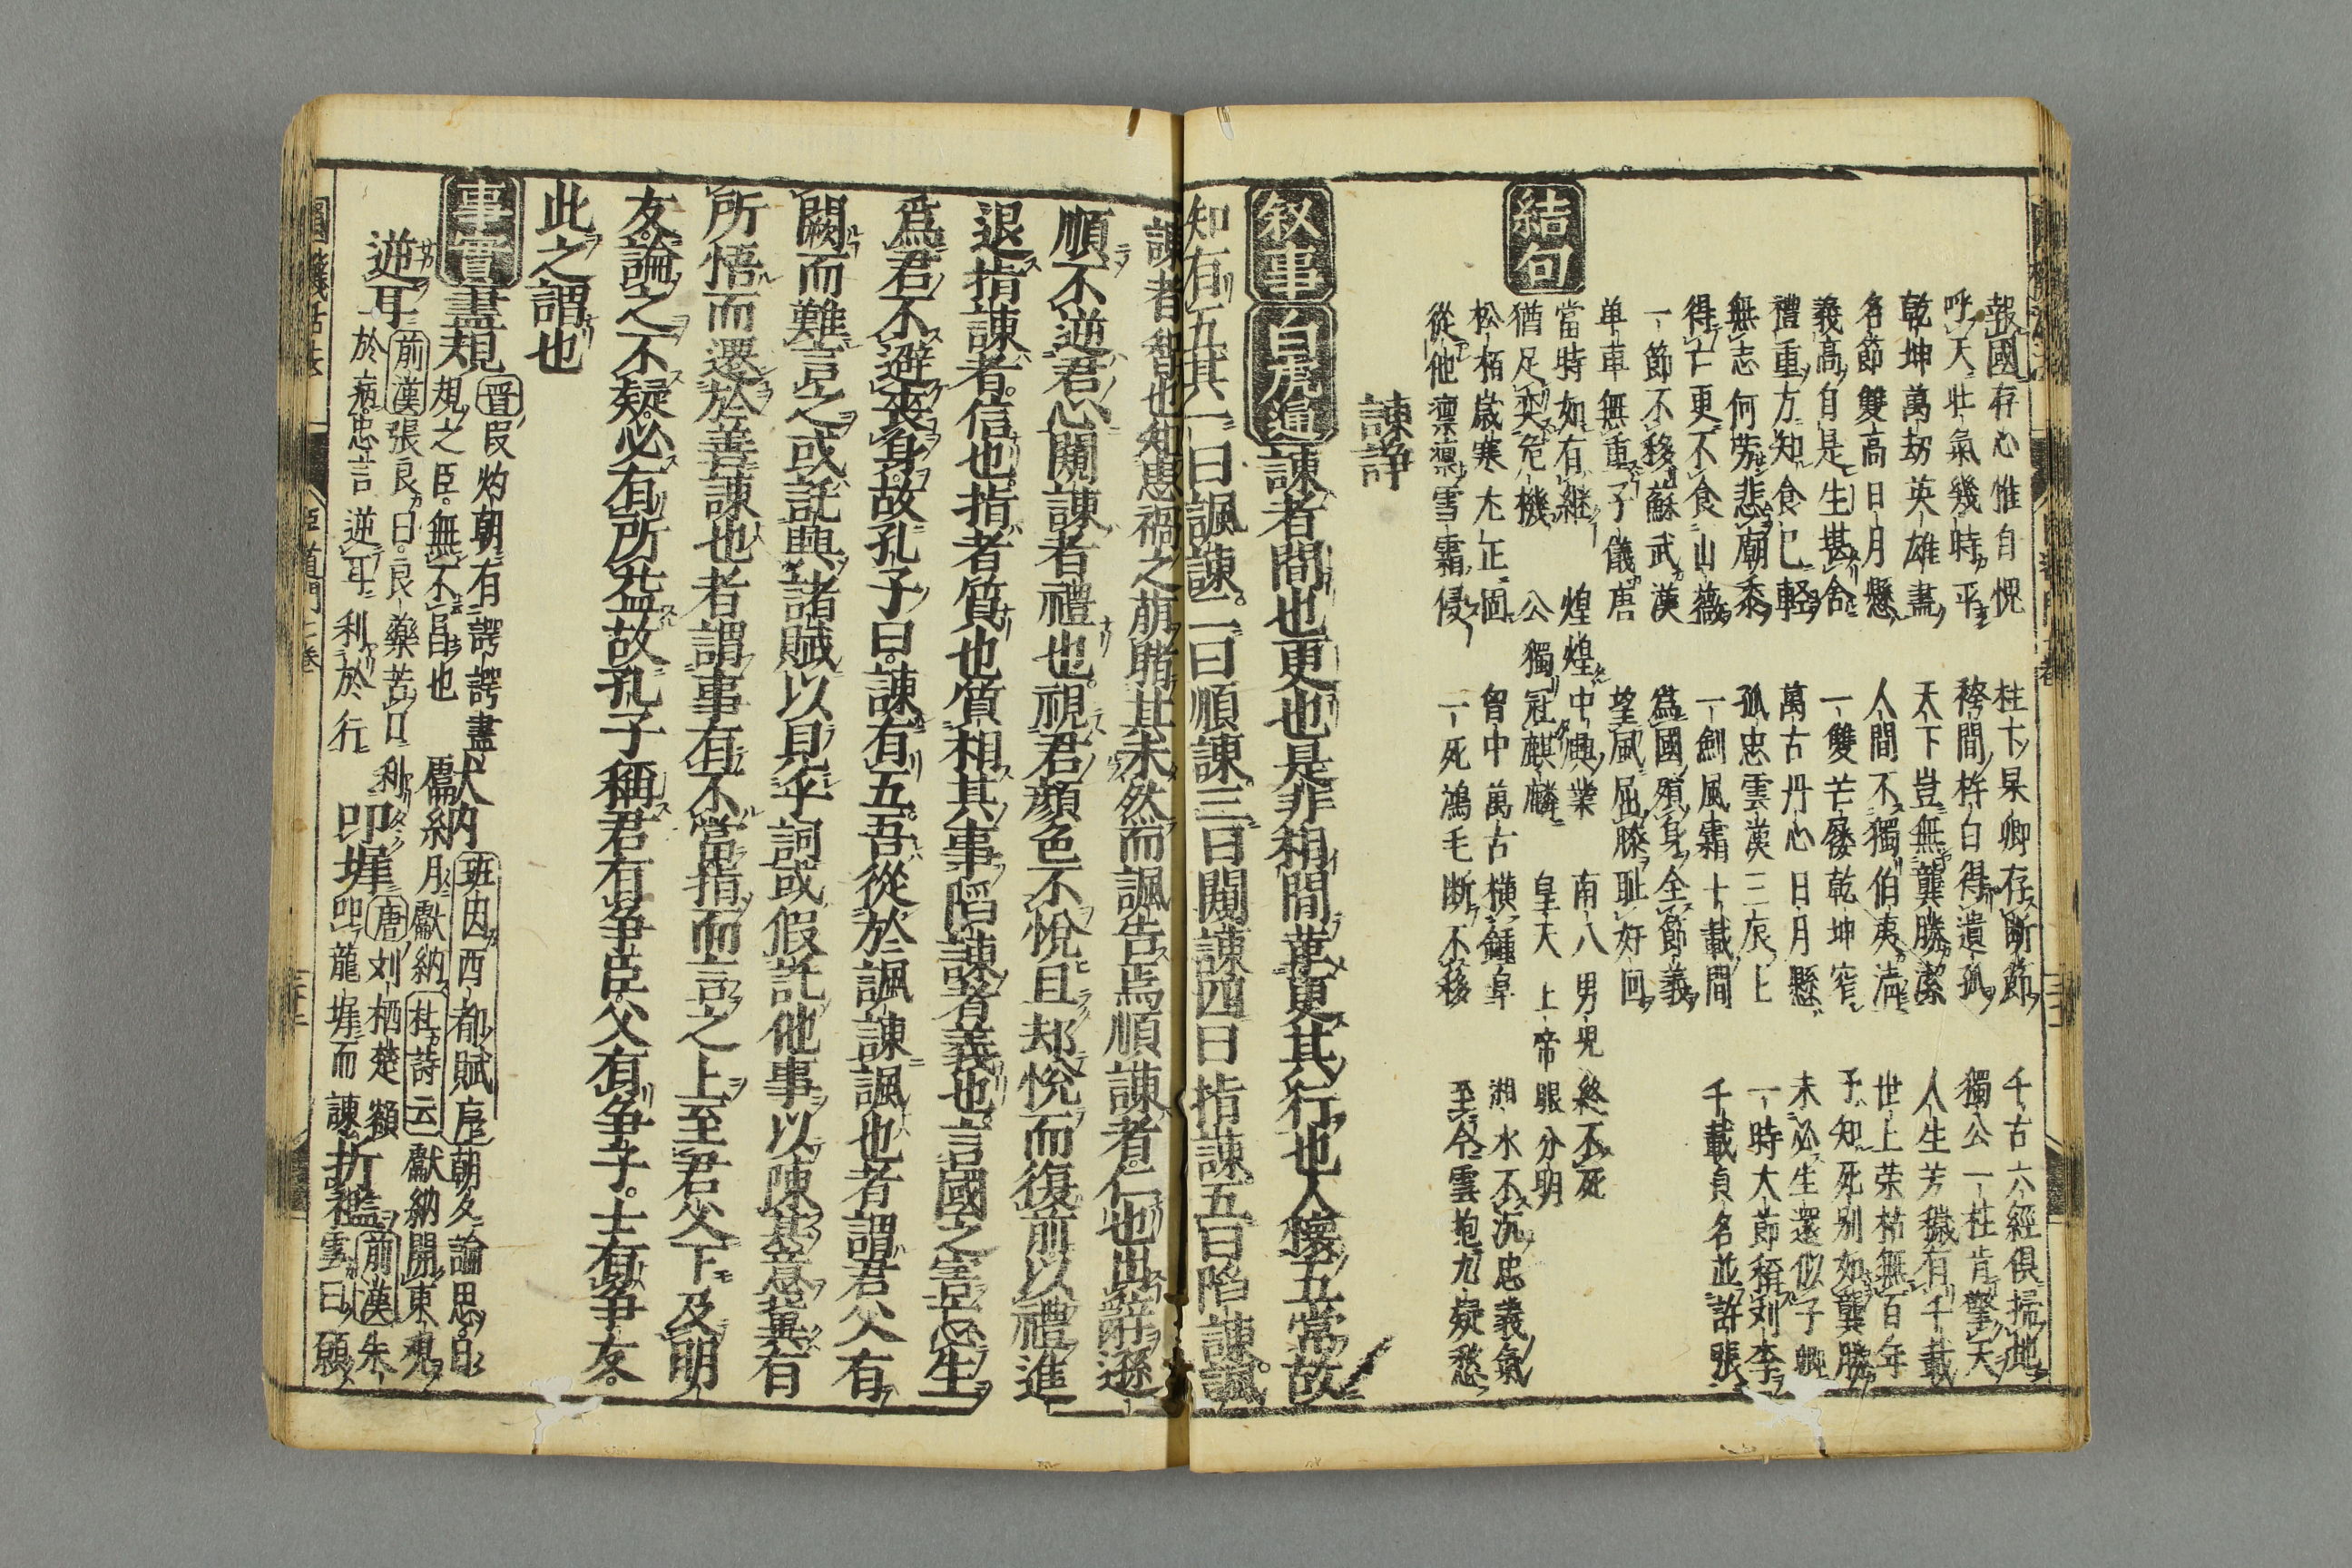 報國存心惟自愧
柱下杲卿存断節
千古六經俱掃地
呼天壮氣幾時平
獨公一柱肯擎天
乾坤萬刼英雄盡
天下豈無龔勝潔
人生芳穢有千載
名節雙高日月懸
人間不獨伯夷清
世上荣枯無百年
義高自是生堪舎
一雙芒屨乾坤窄
予知死别如龔勝
禮重方知食已軽
萬古丹心日月懸
未必生還似子卿
無志何労悲廟黍
孤忠雲漢三辰上
一時大節稱刘李
得亡更不食山薇
一劍風霜十載間
千載貞名並許張
一節不移蘇武漢
爲國殞身全節義
单車無重子儀唐
望風屈膝耻好回
當時如有継
煌煌中興業
南八男児終不死
猶足奕危機
公獨冠麒麟
皇天上帝眼分明
結句
松栢歳寒尤正固
胷中萬古横鍾阜
湘水不沉忠義氣
從他凛凛雪霜侵
一死鴻毛断不移
至今雲抱九疑愁
諫諍
叙事 白虎通 諫者間也更也是非相間革更其行也人懐五常故
知有五其一曰諷諫二曰順諫三曰闚諫四曰指諫五曰陷諫諷
諫者智也知患禍之萠睹其未然而諷告焉順諫者仁也出辭遜
順不逆君心闚諫者禮也視君顔色不悦且却悦而復前以禮進
退指諫者信也指者質也質相其事陷諫者義也言國之害忘生
爲君不避喪身故孔子曰諫有五吾從於諷諫諷也者謂君父有
闕而難言之或託興諸賦以見乎詞或假託他事以陳其意冀有
所悟而還於善諫也者謂事有不當指而言之上至君父下及明
友論之不疑必有所益故孔子稱君有争臣父有争子士有争友
此之謂也
事實 盡規 晋叚灼朝有諤諤盡
規之臣無不昌也
獻納 班固西都賦序朝夕論思日
月獻納 杜詩云 獻納開東観
逆耳 前漢張良曰良藥苦口利
於病忠言逆耳利於行
叩墀 唐刘栖楚額
叩龍墀而諫
折檻 前漢朱
雲曰願